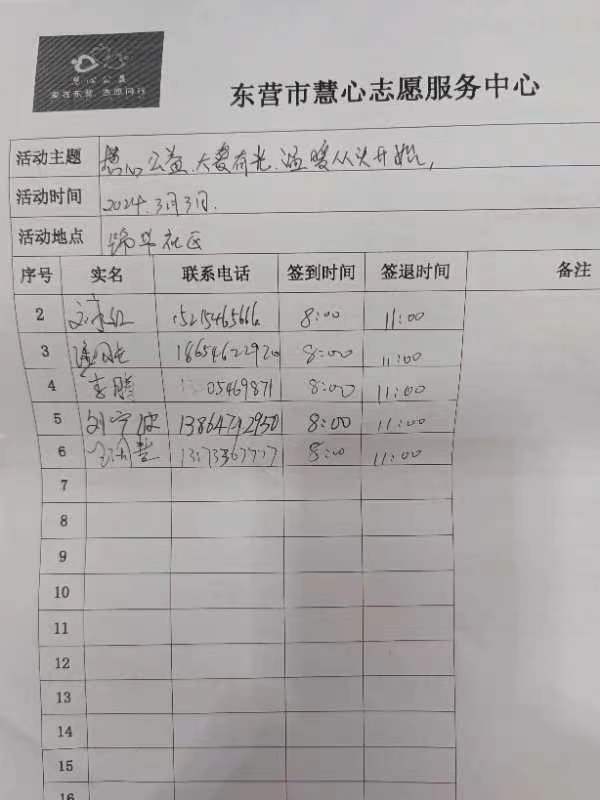 慧心公益
志愿同行
东营市慧心志愿服务中心
活动主题 慧心公益、大爱有光、温暖从头开始,
活动时间 2024.3月3日.
活动地点 锦华社区
序号 实名 联系电话 签到时间 签退时间 备注
2 15215465666 8:00 11:00
3 18654622920 8:00 11:00
4 李腾 05469871 8:00 11:00
5 刘宁波 13864742950 8:00 11:00
6 8:00 11:00
7
8
9
10
11
12
13
14
15
16